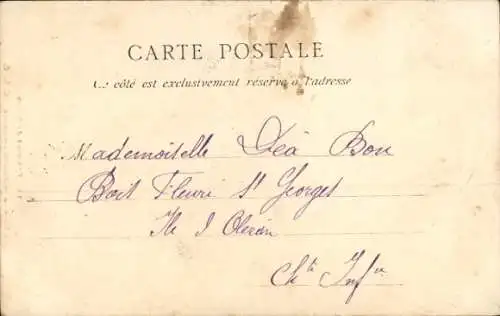 CARTE POSTALE
Ce côté est exclusivement réservé à l'adresse
Mademoiselle Léa Bon
Bois Fleuri St Georges
Ile d Oleron
Chte Infre